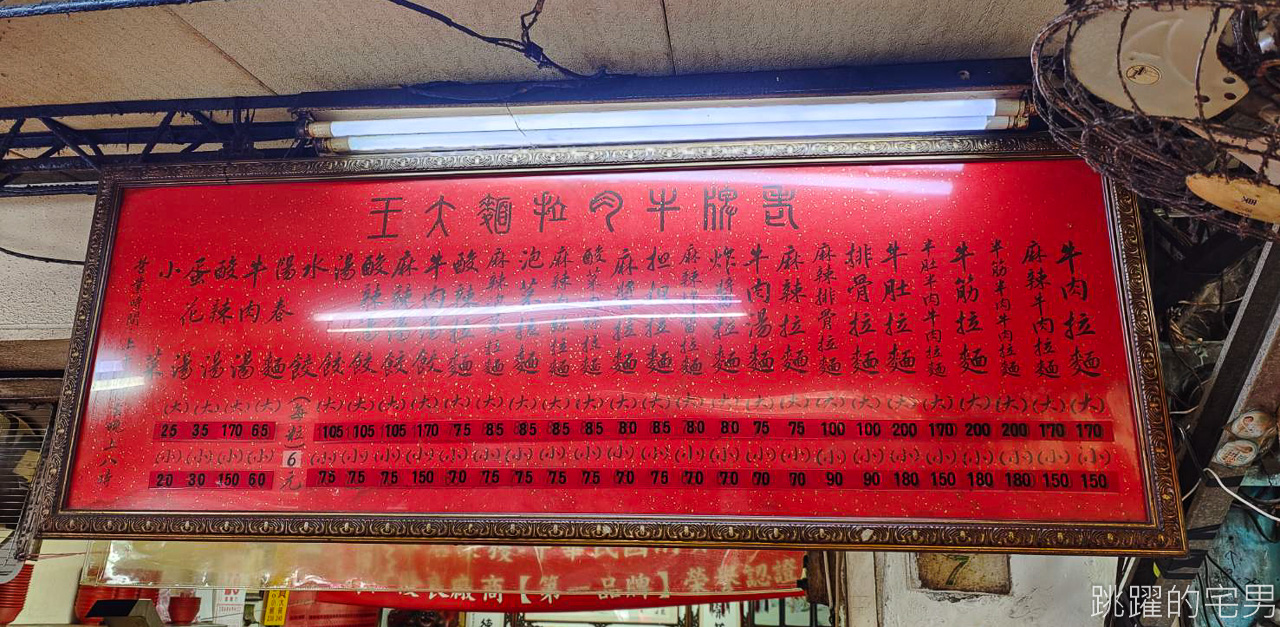 老牌牛肉拉麵大王
牛肉拉麵
麻辣牛肉拉麵
牛筋牛肉牛肉拉麵
牛筋拉麵
牛肚牛肉牛肉拉麵
牛肚拉麵
排骨拉麵
麻辣排骨拉麵
麻辣拉麵
牛肉湯麵
炸醬拉麵
麻辣炸醬拉麵
担担拉麵
麻醬拉麵
酸菜肉絲拉麵
麻辣肉絲拉麵
泡菜拉麵
麻辣泡菜拉麵
酸辣拉麵
牛肉湯餃
麻辣湯餃
酸辣湯餃
湯餃
水餃
陽春麵
牛肉湯
酸辣湯
蛋花湯
小菜
營業時間 上 晚上八時
(大) (大) (大) (大) (每粒 (大) (大) (大) (大) (大) (大) (大) (大) (大) (大) (大) (大) (大) (大) (大) (大) (大) (大) (大) (大) (大) (大) (大)
25 35 170 65 105 105 105 170 75 85 85 85 85 80 85 80 80 75 75 100 100 200 170 200 200 170 170
(小) (小) (小) (小) 6 (小) (小) (小) (小) (小) (小) (小) (小) (小) (小) (小) (小) (小) (小) (小) (小) (小) (小) (小) (小) (小) (小) (小)
20 30 150 60 元 75 75 75 150 70 75 75 75 75 70 75 70 70 70 70 90 90 180 150 180 180 150 150
良廠商【第一品牌】榮譽認證
7
跳躍的宅男